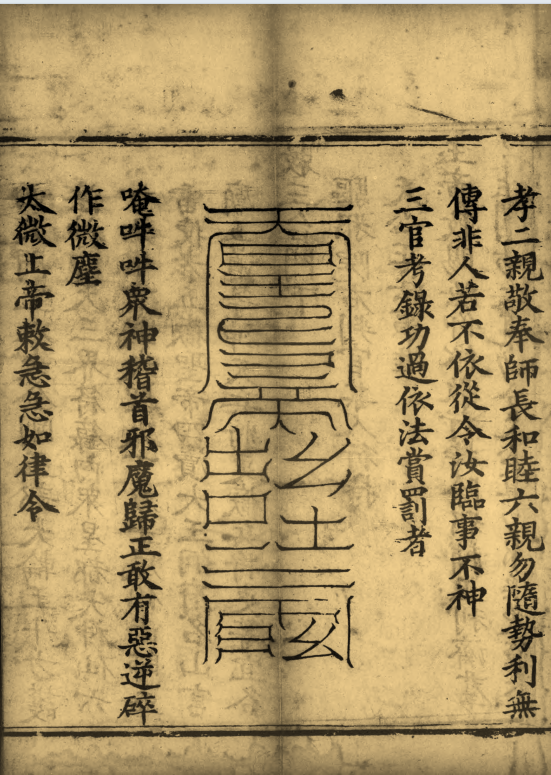 孝二親敬奉師長和睦六親勿隨勢利無
傳非人若不依從令汝臨事不神
三官考錄功過依法賞罰者
唵吽吽眾神稽首邪魔歸正敢有惡逆碎
作微塵
太微上帝敕急急如律令